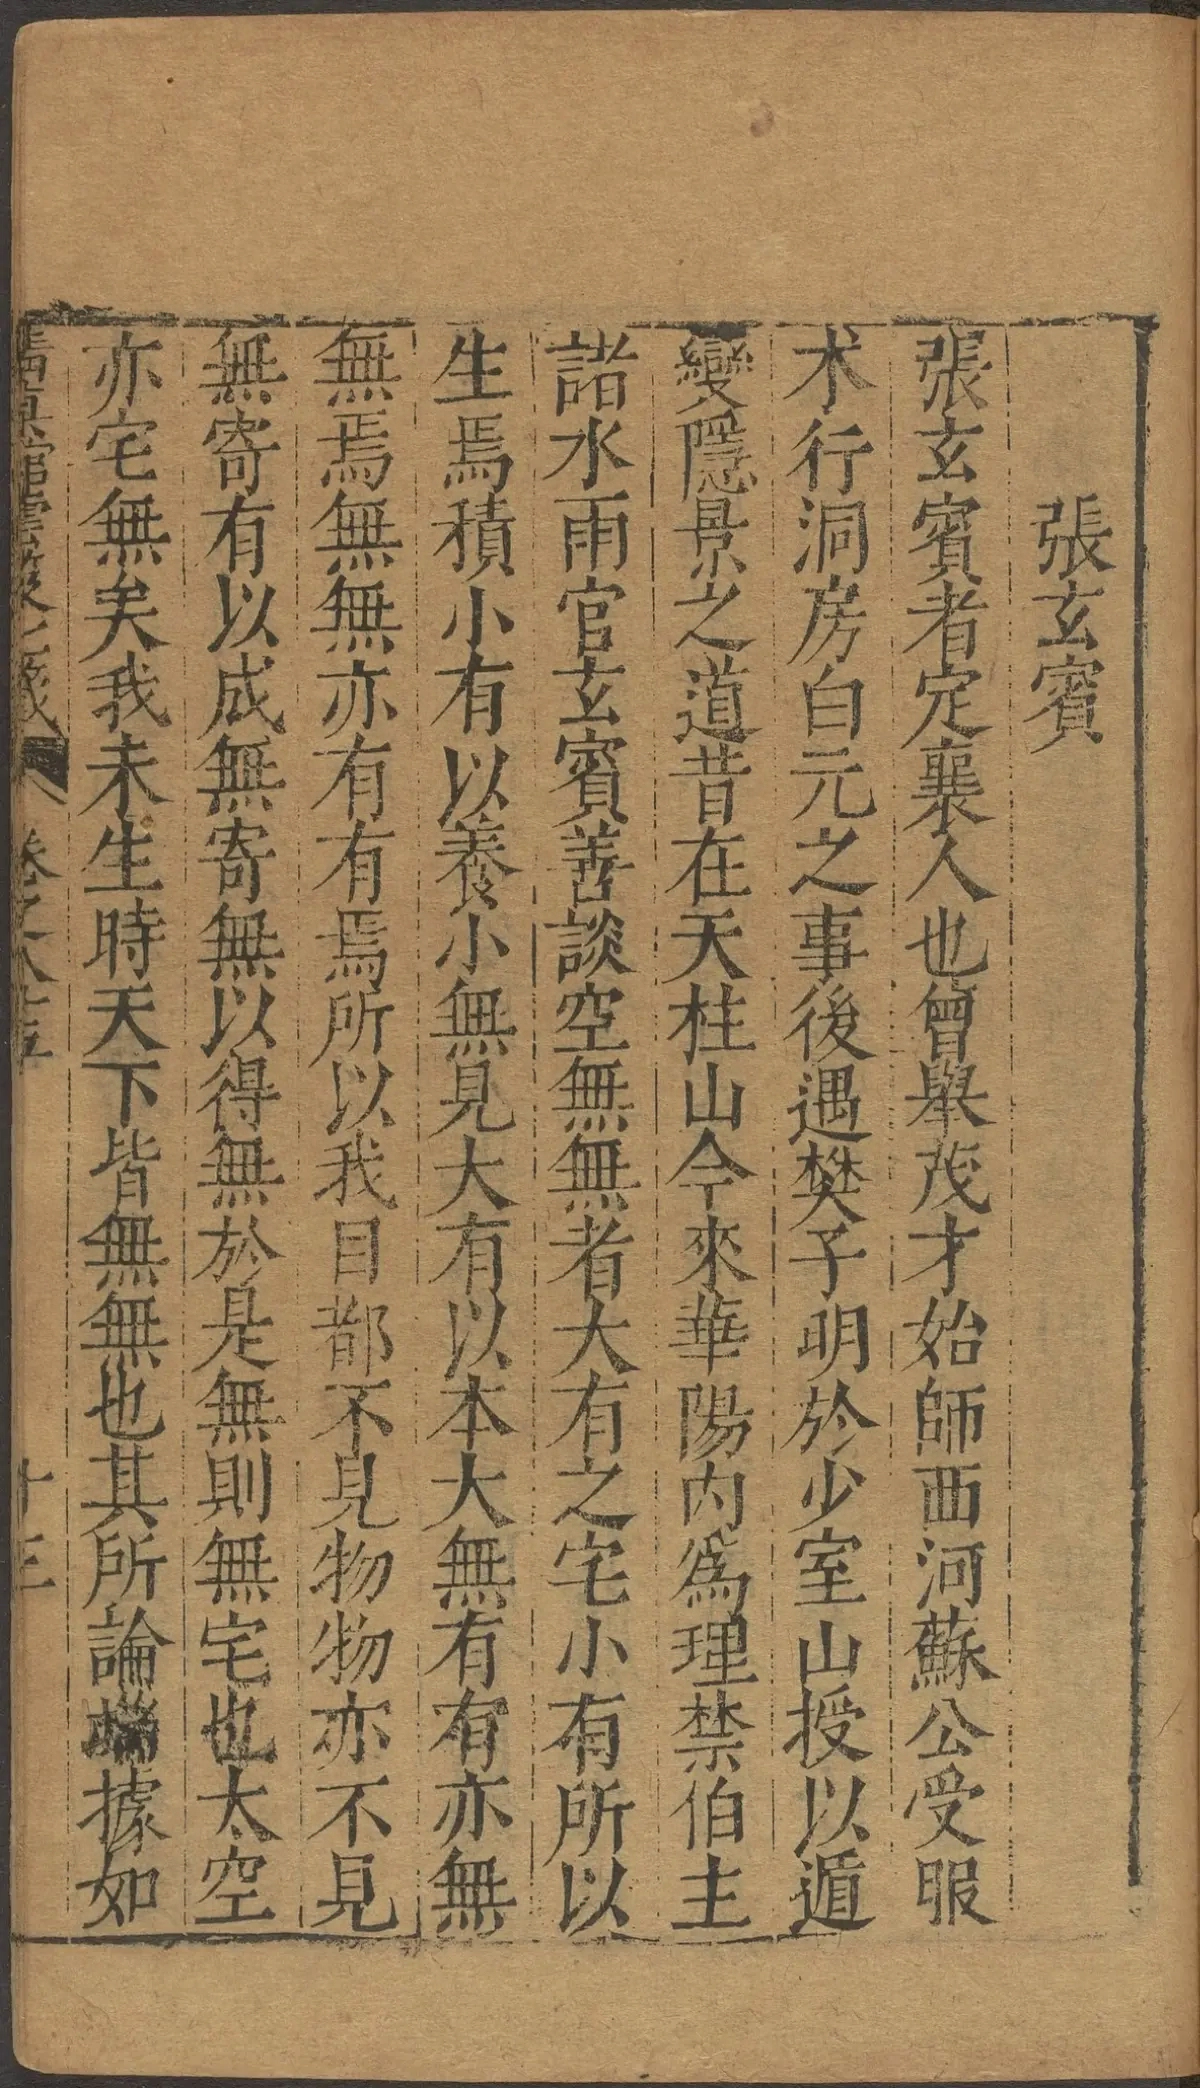 張玄賓
張玄賓者定襄人也曾舉茂才始師西河蘇公受服
术行洞房白元之事後遇樊子明於少室山授以遁
變隱景之道昔在天柱山今來華陽內爲理禁伯主
諸水雨官玄賓善談空無無者大有之宅小有所以
生焉積小有以養小無見大有以本大無有有亦無
無焉無無亦有有焉所以我目都不見物物亦不見
無寄有以成無寄無以得無於是無則無宅也太空
亦宅無矣我未生時天下皆無無也其所論據如
清真館雲笈七籤 卷之 十三